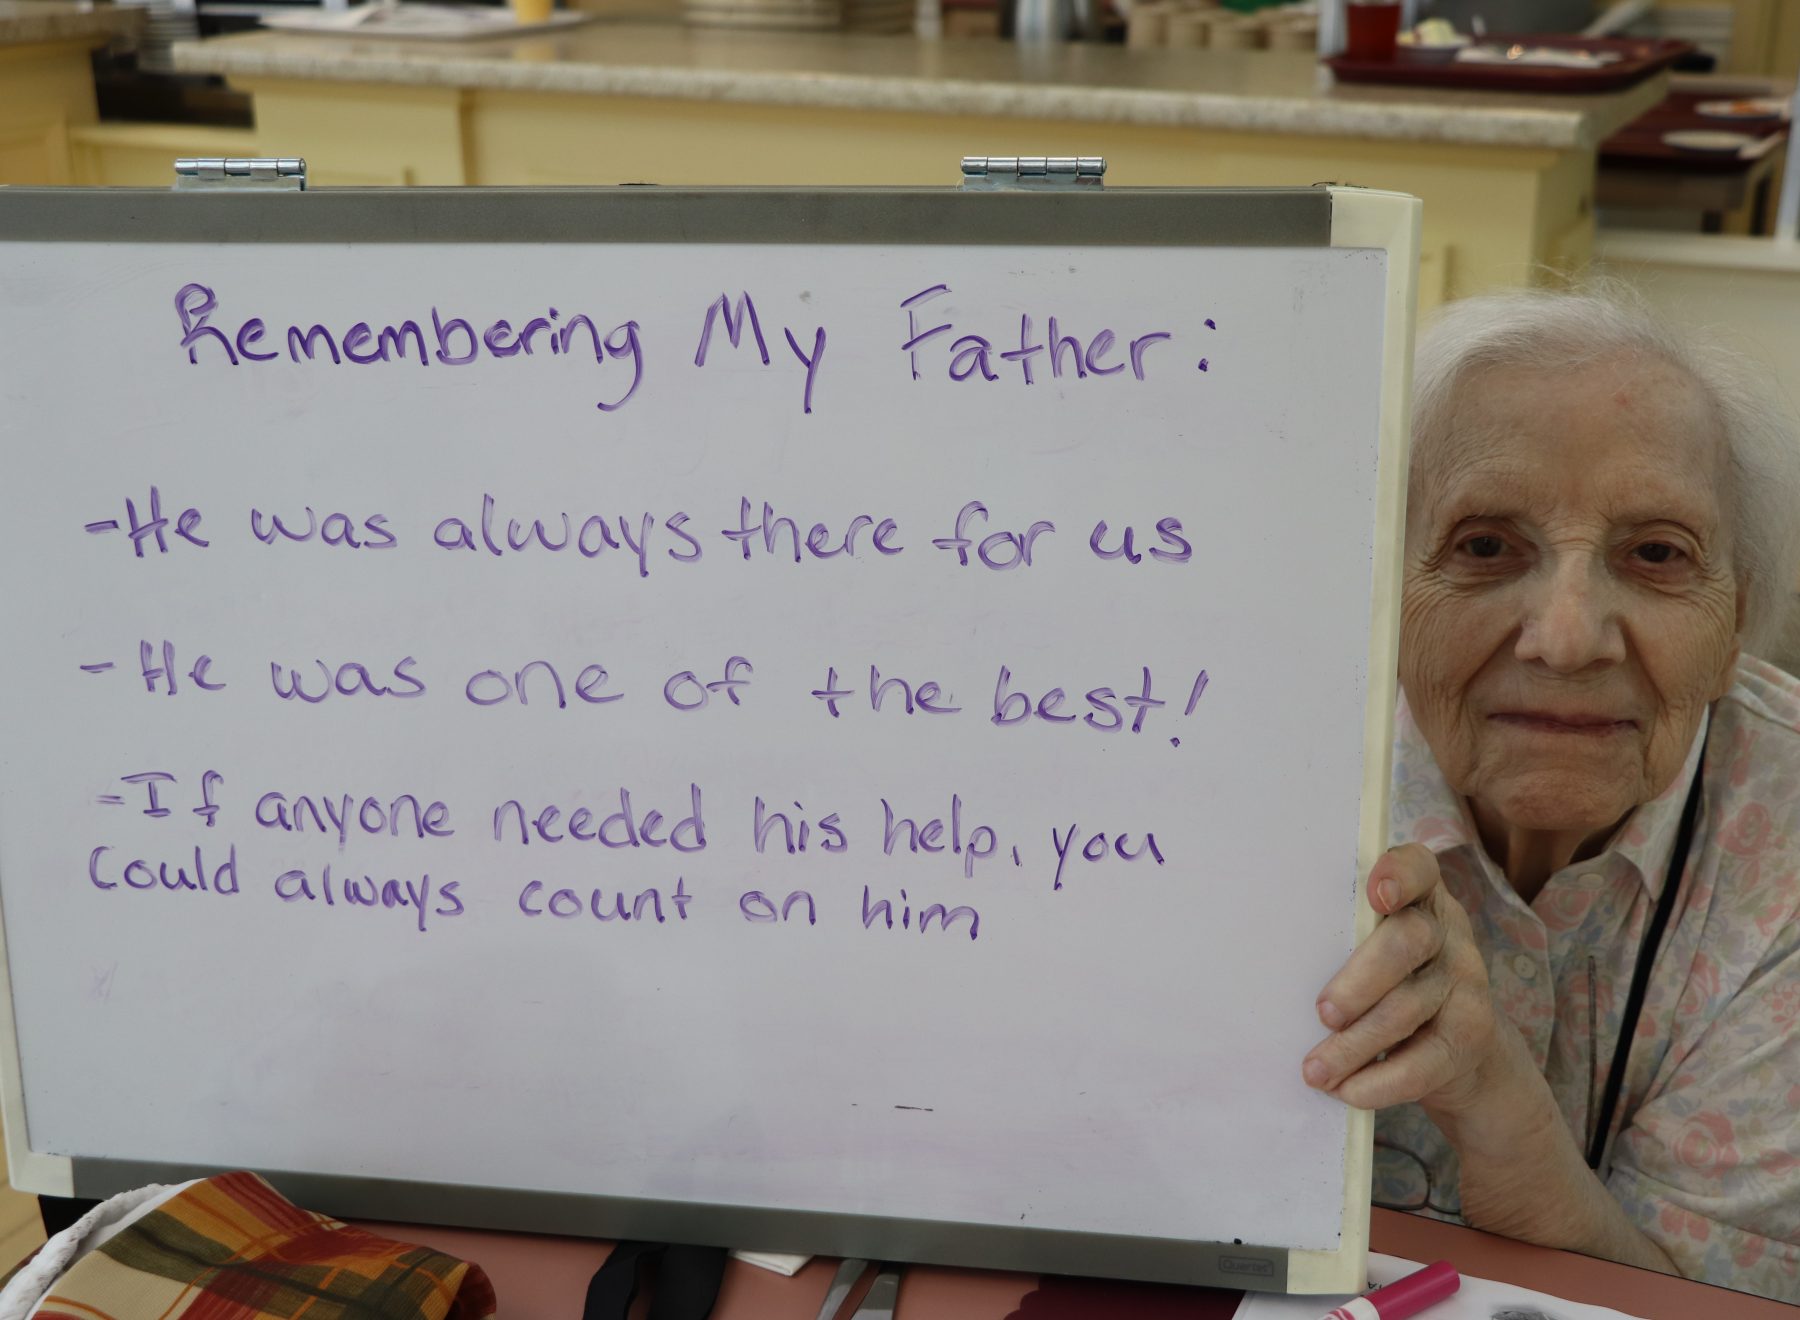 Remembering My Father:
-He was always there for us
-He was one of the best!
-If anyone needed his help, you
Could always count on him
Quartet